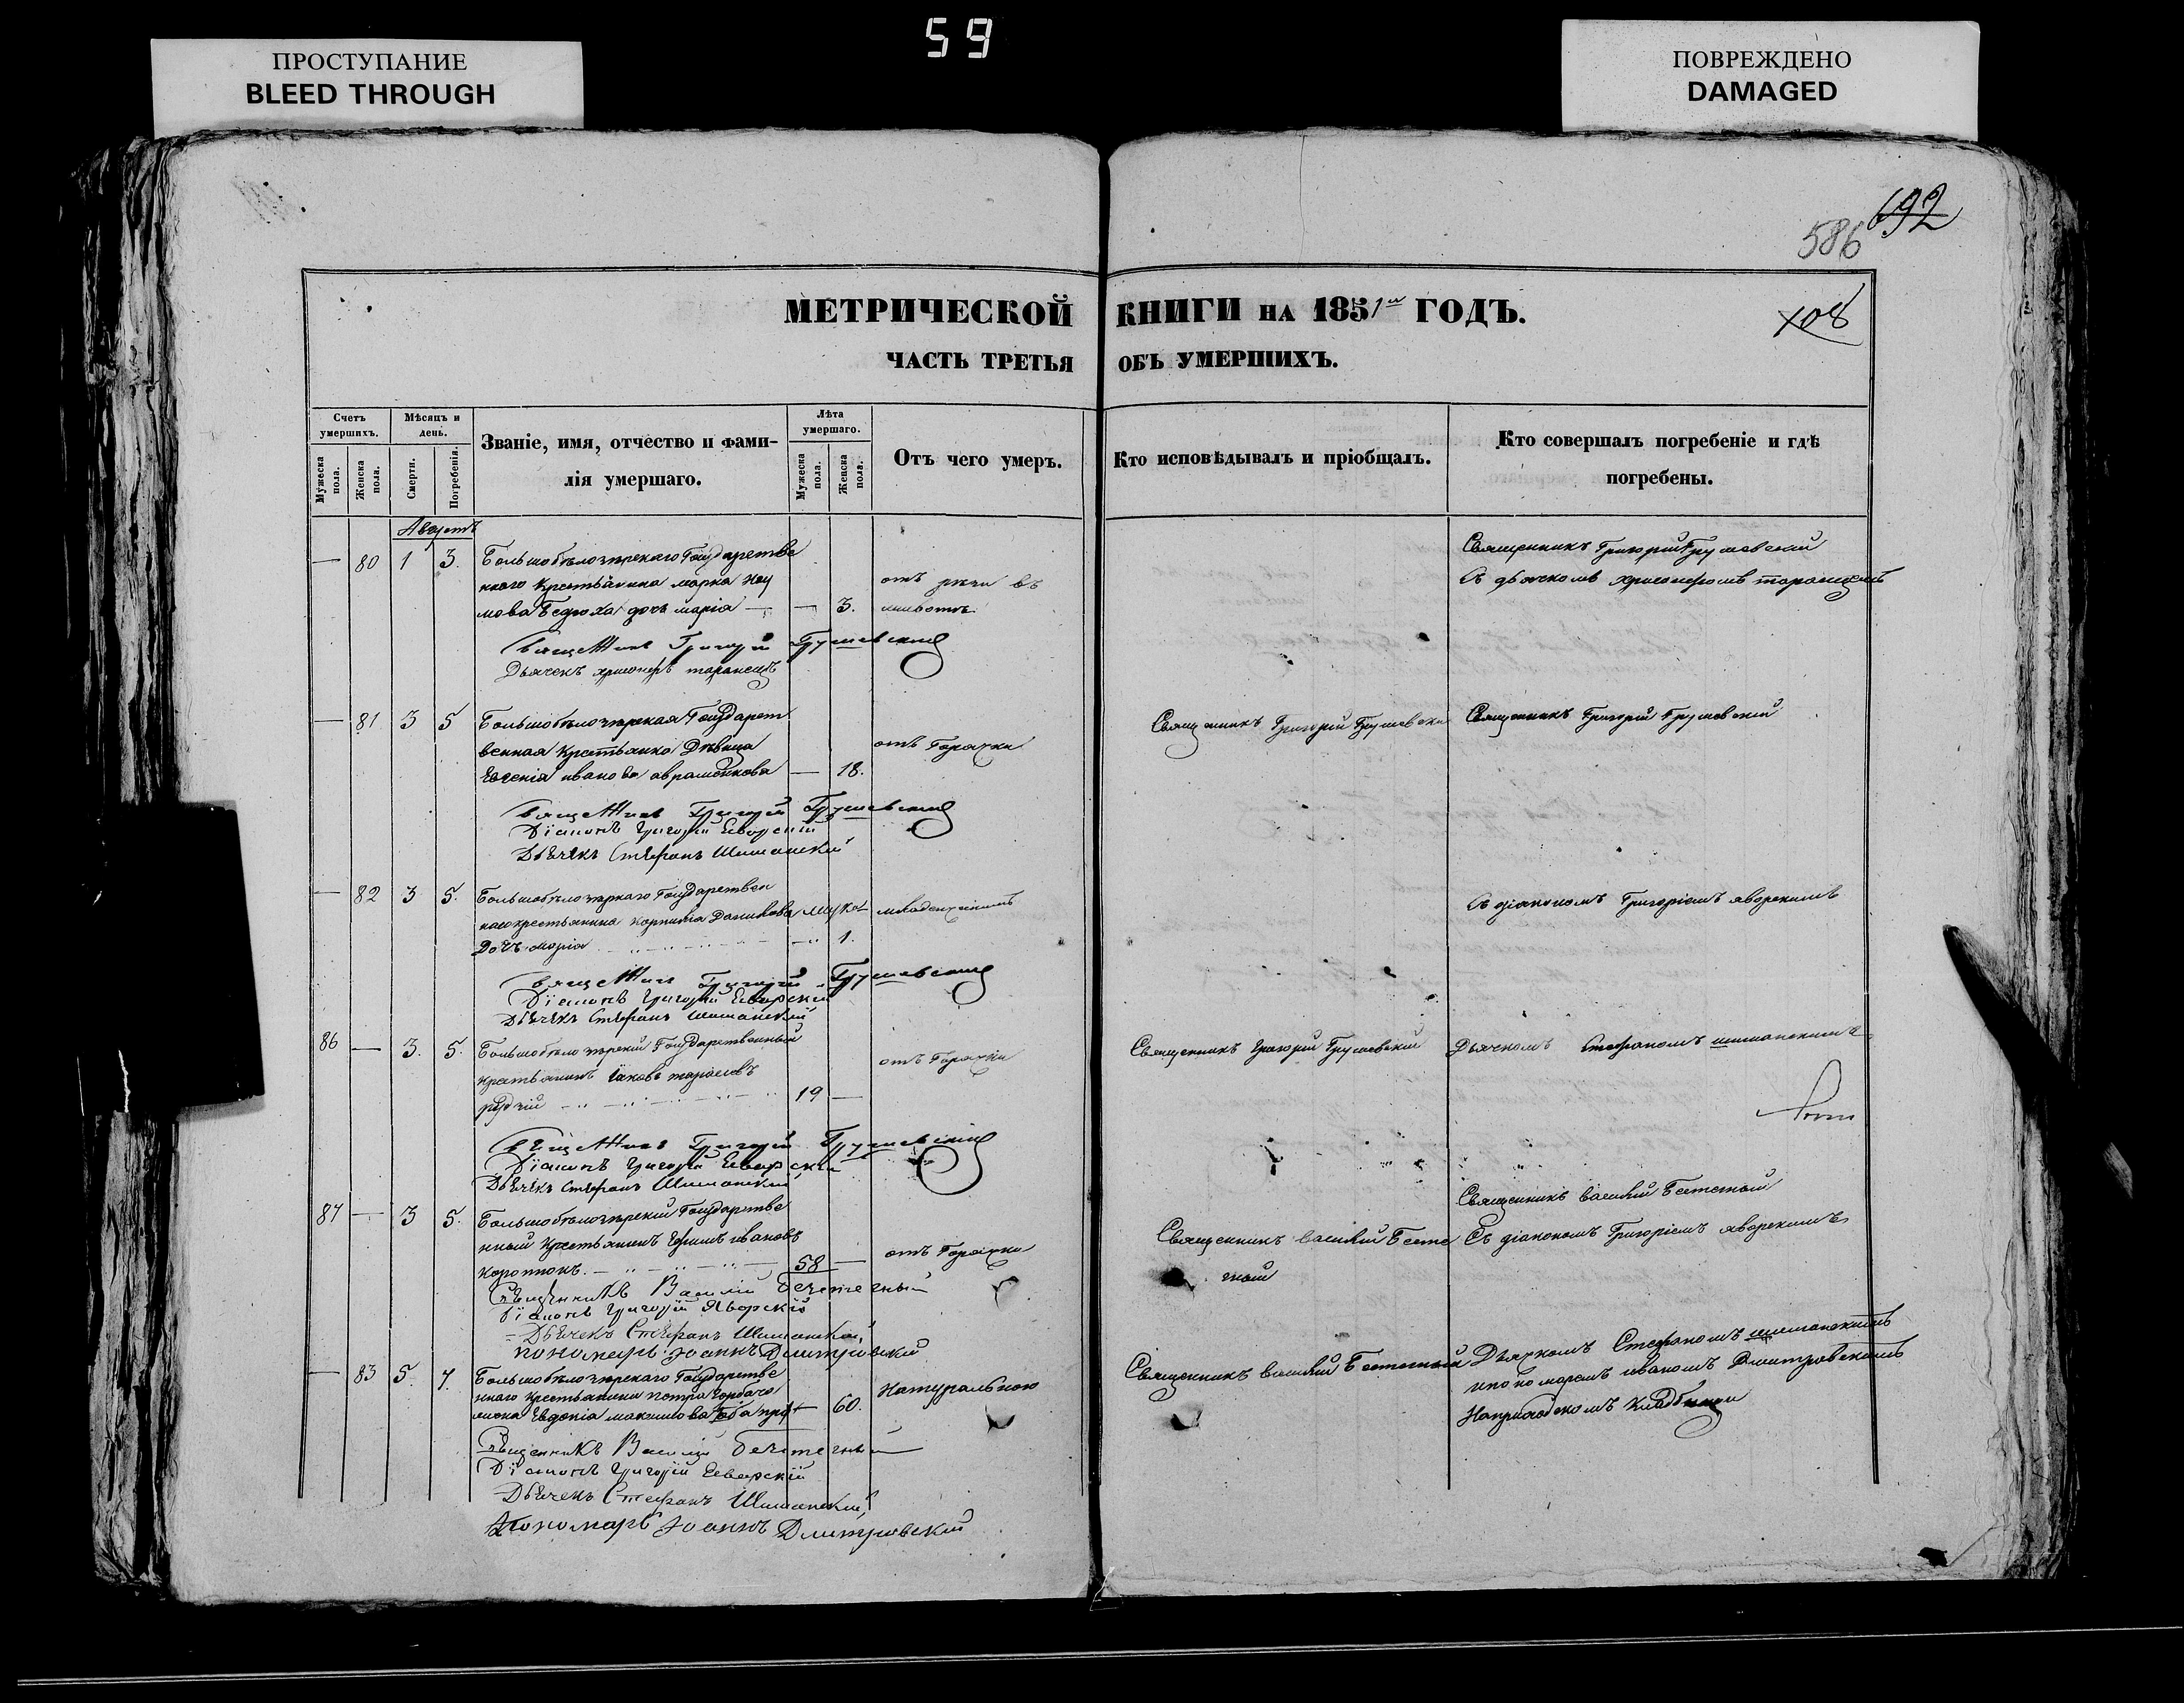 59
ПРОСТУПАНИЕ
BLEED THROUGH
ПОВРЕЖДЕНО
DAMAGED
692
586
108
МЕТРИЧЕСКОЙ КНИГИ НА 1851 ГОДЪ.
ЧАСТЬ ТРЕТЬЯ ОБЪ УМЕРШИХЪ.
Счетъ умершихъ.
Мужеска пола.
Женска пола.
Мѣсяцъ и день.
Смерти.
Погребенія.
Званіе, имя, отчество и фами-
лія умершаго.
Лѣта умершаго.
Мужеска пола.
Женска пола.
Отъ чего умеръ.
Кто исповѣдывалъ и пріобщалъ.
Кто совершалъ погребеніе и гдѣ
погребены.
Августъ
— 80 1 3. Большобѣлозерскаго Государстве
ннаго Крестьянина марка
дочь марія — — 3. отъ рѣзи въ животѣ.
Священникъ Григорій Грушевскій
Съ дьячкомъ
Священникъ Григорій Грушевскій
Дьячекъ
— 81 3 5 Большобѣлозерская Государст
венная Крестьянка Дѣвица
Евгенія иванова авраменкова — 18. отъ Горячки
Священникъ Григорій Грушевскій
Священникъ Григорій Грушевскій
Священникъ Григорій Грушевскій
Діаконъ Григорій Яворскій
Дьячекъ Стефанъ Шиманскій
— 82 3 5. Большобѣлозерскаго Государствен
наго крестьянина Данилова
Дочь марія — 1. младенческимъ
Съ діакономъ Григоріемъ яворскимъ
Священникъ Григорій Грушевскій
Діаконъ Григорій Яворскій
Дьячекъ Стефанъ Шиманскій
86 — 3. 5. Большобѣлозерскій Государственный
крестьянинъ іаковъ тарасовъ
рудчій 19 — отъ Горячки
Священникъ Григорій Грушевскій
Дьячкомъ Стефаномъ шиманскимъ
Священникъ Григорій Грушевскій
Діаконъ Григорій Яворскій
Дьячекъ Стефанъ Шиманскій
87 — 3 5. Большобѣлозерскій Государстве
нный Крестьянинъ Ефимъ ивановъ
58 — отъ Горячки
Священникъ василій
Священникъ василій
Съ діакономъ Григоріемъ яворскимъ
Священникъ Василій
Діаконъ Григорій Яворскій
Дьячекъ Стефанъ Шиманскій,
пономарь Іоаннъ Дмитровскій
— 83 5. 7. Большобѣлозерскаго Государстве
ннаго крестьянина петра
жена Евдокія максимова — 60. Натуральною
Священникъ василій
Дьячкомъ Стефаномъ шиманскимъ
ипономаремъ иваномъ Дмитровскимъ
Наприходскомъ Кладбищи
Священникъ Василій
Діаконъ Григорій Яворскій
Дьячекъ Стефанъ Шиманскій,
Пономарь Іоаннъ Дмитровскій